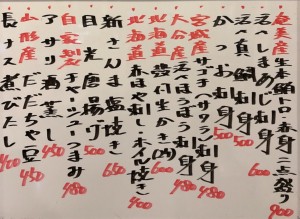 奄美産生本鮪トロ・赤身二点盛り 900
活〆しまあじ刺身 600
活〆真鯛刺身
かつお刺身
宮城産サゴチ(サワラ)刺身 480
大分産活〆ほうぼう刺身 480
北海道生かき(2ヶ) 600
北海道赤ほや刺し・ホル焼き
新さんま塩焼き 650
目光唐揚げ 500
自家製チャーシューつまみ 480
アサリ酒蒸し 450
山形産だだちゃ豆 450
長ナス煮びたし 400